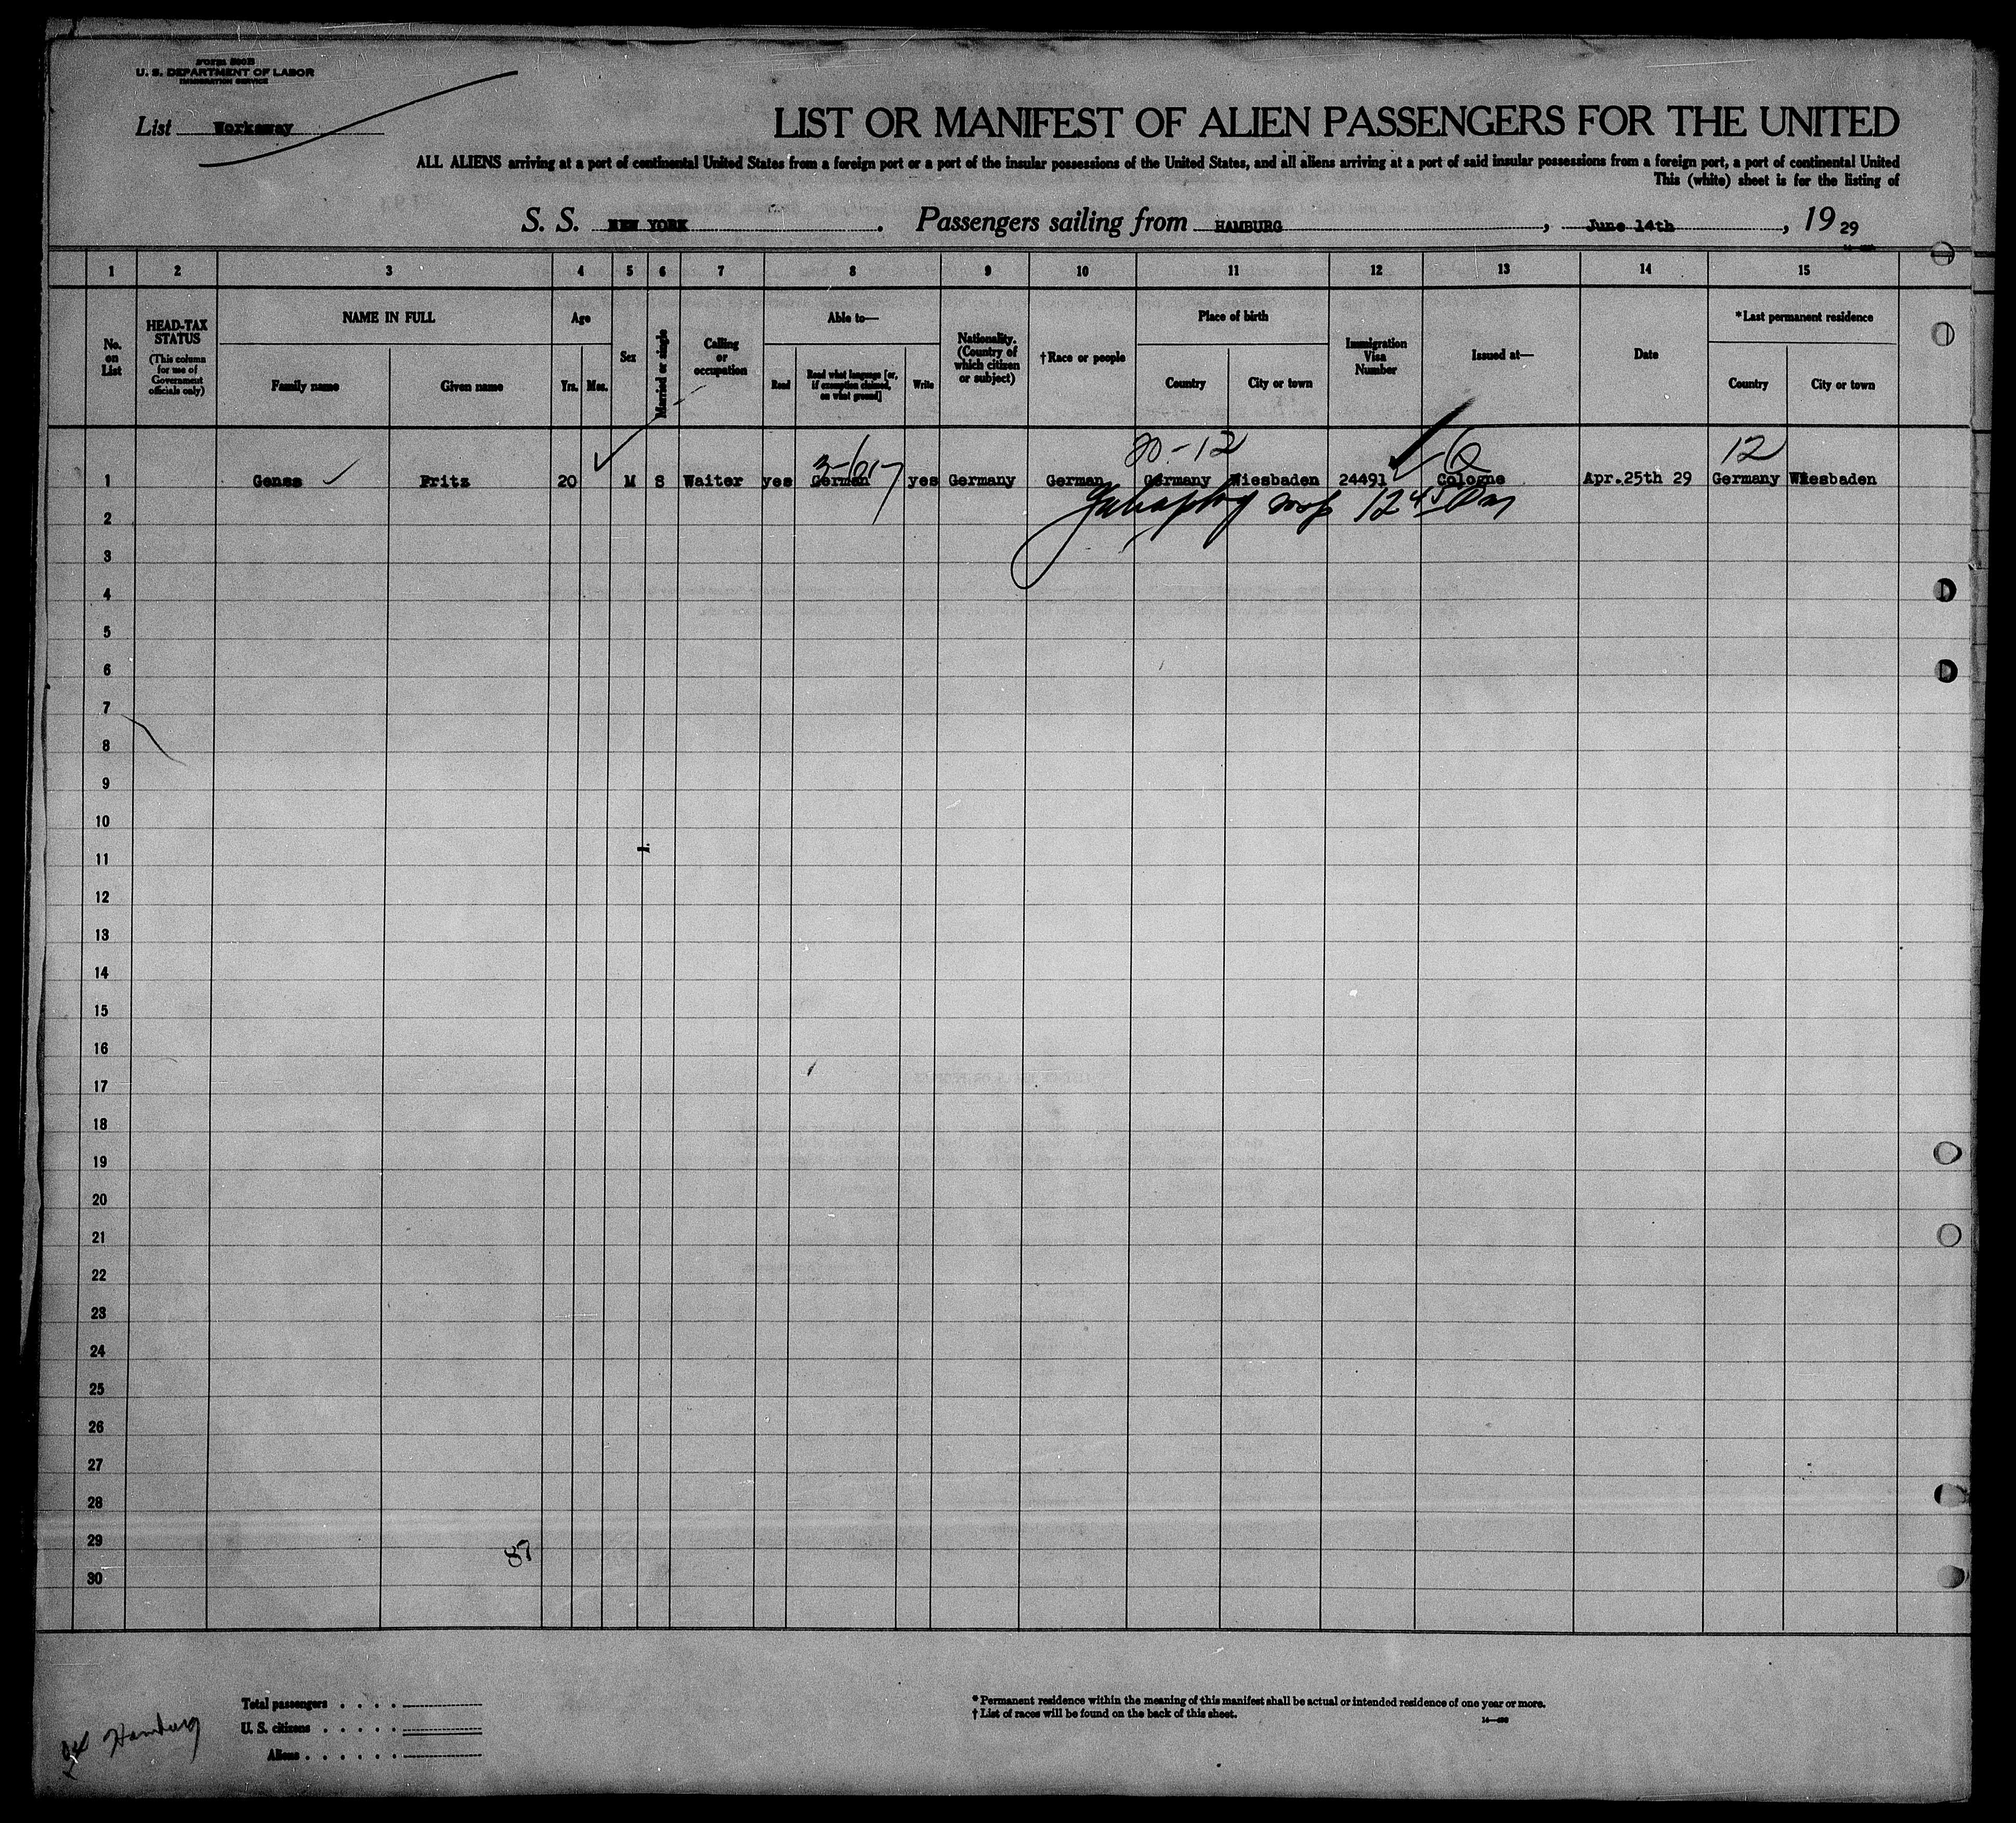 FORM 500B
U. S. DEPARTMENT OF LABOR
IMMIGRATION SERVICE
List Workaway
LIST OR MANIFEST OF ALIEN PASSENGERS FOR THE UNITED
ALL ALIENS arriving at a port of continental United States from a foreign port or a port of the insular possessions of the United States, and all aliens arriving at a port of said insular possessions from a foreign port, a port of continental United
This (white) sheet is for the listing of
S. S. NEW YORK . Passengers sailing from HAMBURG , June 14th , 19 29
1 2 3 4 5 6 7 8 9 10 11 12 13 14 15
No. on List
HEAD-TAX STATUS
(This column for use of Government officials only)
NAME IN FULL
Family name
Given name
Age
Yrs.
Mos.
Sex
Married or single
Calling or occupation
Able to—
Read
Read what language [or, if exemption claimed, on what ground]
Write
Nationality. (Country of which citizen or subject)
†Race or people
Place of birth
Country
City or town
Immigration Visa Number
Issued at—
Date
*Last permanent residence
Country
City or town
20-12
12
1 Genss Fritz 20 M S Waiter yes German yes Germany German Germany Wiesbaden 24491 Cologne Apr.25th 29 Germany Wiesbaden
2
3
4
5
6
7
8
9
10
11
12
13
14
15
16
17
18
19
20
21
22
23
24
25
26
27
28
29
87
30
Total passengers
U. S. citizens
Aliens
Hamburg
* Permanent residence within the meaning of this manifest shall be actual or intended residence of one year or more.
† List of races will be found on the back of this sheet.